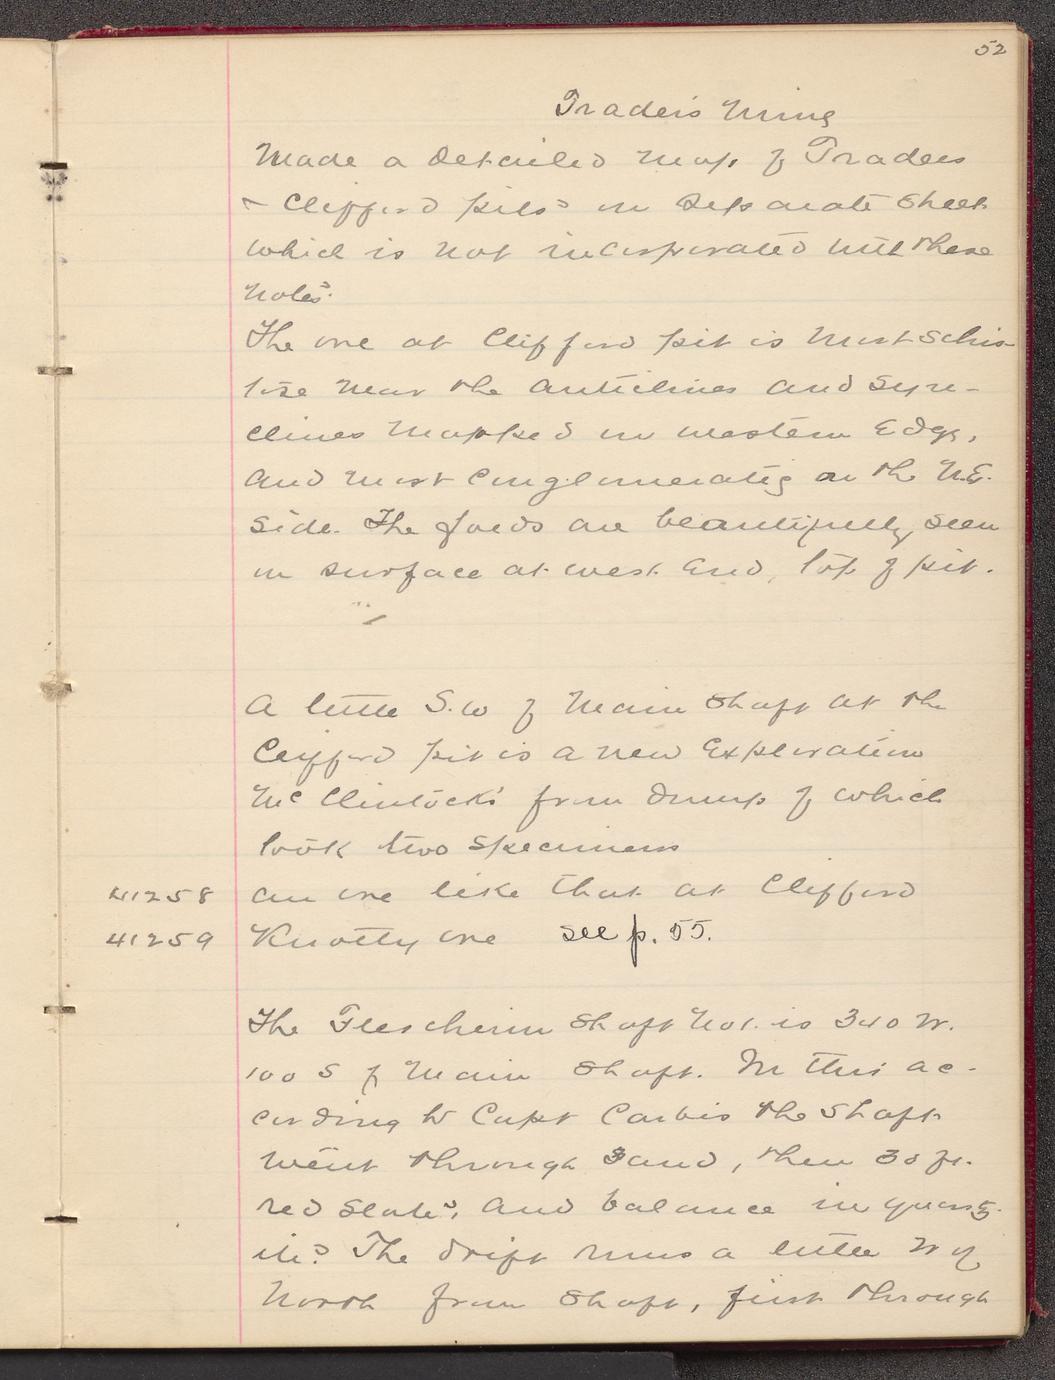 52
Traders Mine
Made a detailed map of Traders
& Clifford pits on separate sheet
which is not incorporated with these
notes.
The ore at Clifford pit is most schis-
tose near the anticlines and syn-
clines mapped on western edge,
and most conglomeratic on the N.E.
side. The folds are beautifully seen
on surface at west end, top of pit.
A little S.W of Main Shaft at the
Clifford pit is a new exploration
McClintock's from dump of which
took two specimens
41258 an ore like that at Clifford
41259 Knotty ore see p. 55.
The Flescheim Shaft No 1. is 340 W.
100 S of Main Shaft. In this ac-
cording to Capt Carbis the shaft
went through sand, then 30 ft.
red slate, and balance in quartz-
ite. The drift runs a little W of
North from shaft, first through